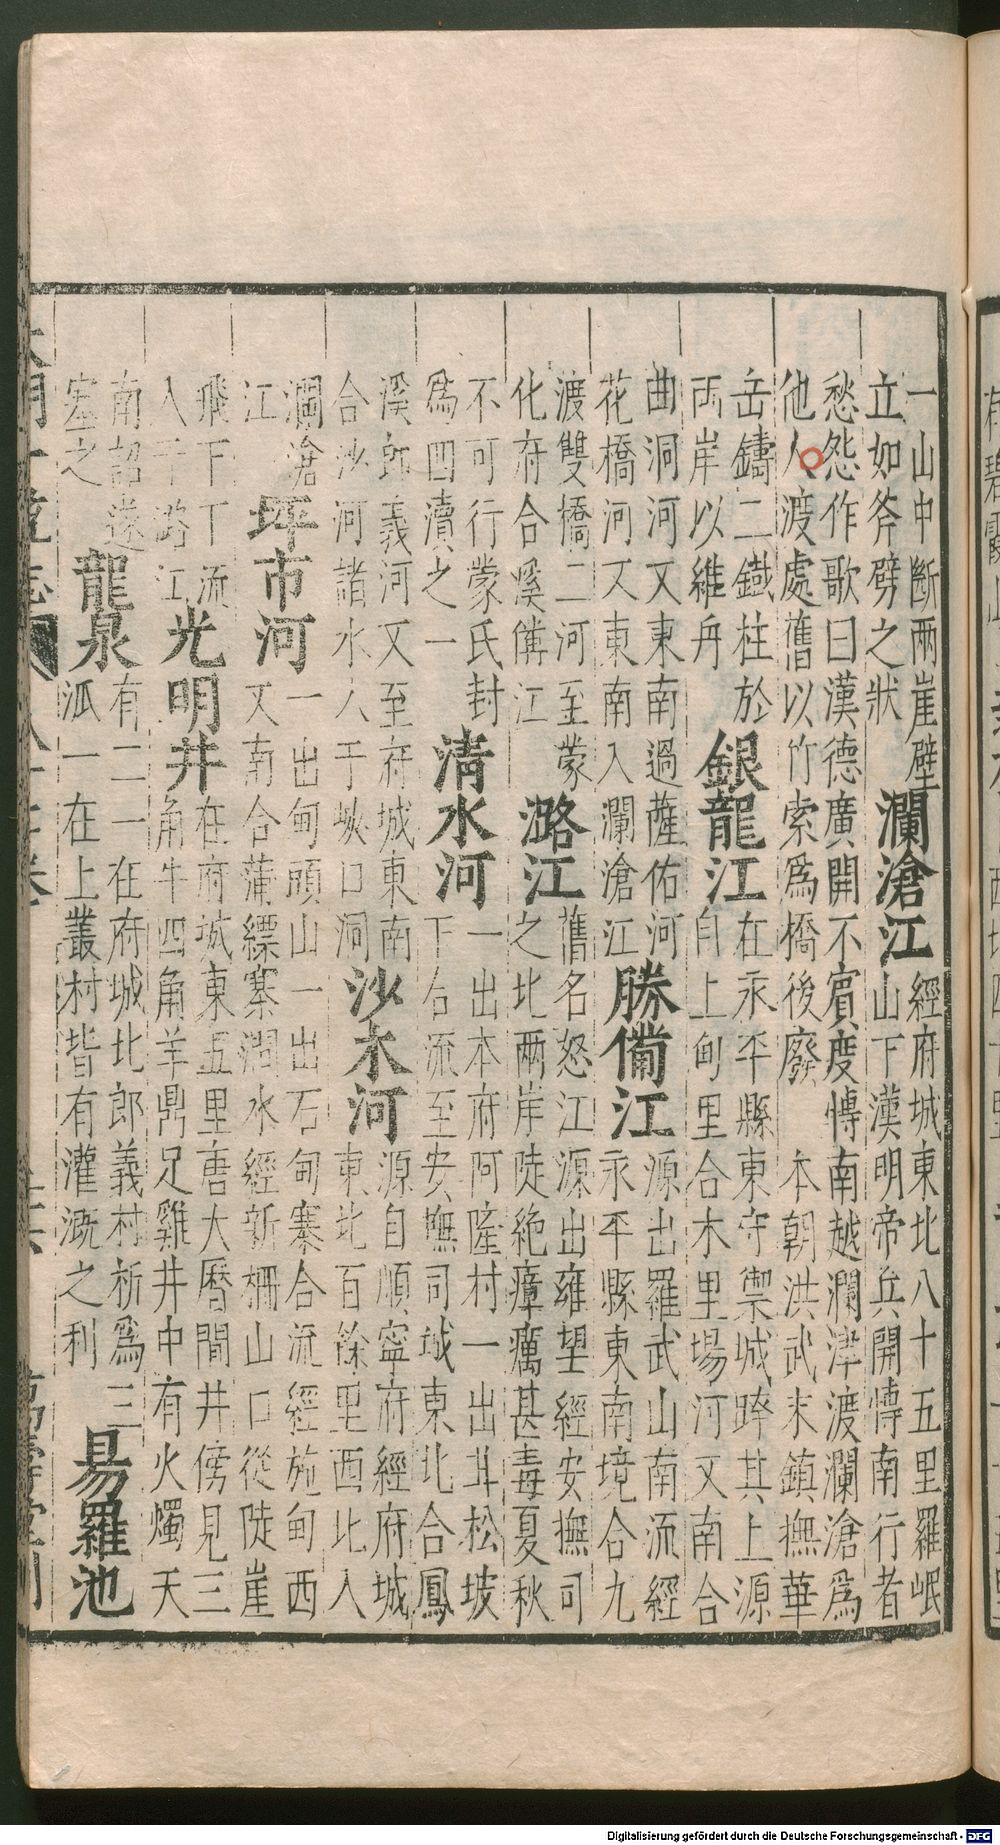 一山中斷兩崖壁
立如斧劈之狀
瀾滄江
經府城東北八十五里羅岷
山下漢明帝兵開愽南行者
愁怨作歌曰漢德廣開不賓度愽南越瀾津渡瀾滄爲
他人渡處舊以竹索爲橋後廢　本朝洪武末鎮撫華
岳鑄二鐵柱於
兩岸以維舟
銀龍江
在永平縣東守禦城跨其上源
自上甸里合木里場河又南合
曲洞河又東南過薩佑河
花橋河又東南入瀾滄江
勝備江
源出羅武山南流經
永平縣東南境合九
渡雙橋二河至蒙
化府合溪備江
潞江
舊名怒江源出雍望經安撫司
之北兩岸陡絶瘴癘甚毒夏秋
不可行蒙氏封
爲四瀆之一
清水河
一出本府阿隆村一出弄松坡
下合流至安撫司城東北合鳳
溪郎義河又至府城東南
合沙河諸水入于峽口洞
沙木河
源自順寧府經府城
東北百餘里西北入
瀾滄
江
坪市河
一出甸頭山一出石甸寨合流經施甸西
又南合蒲縹寨澗水經新柵山口從陡崖
飛下下流
入于潞江
光明井
在府城東五里唐大曆間井傍見三
角牛四角羊鼎足雞井中有火燭天
南詔遂
塞之
龍泉
有二一在府城北郎義村祈爲三
派一在上叢村皆有灌溉之利
易羅池
大明一統志
萬壽堂刊
Digitalisierung gefördert durch die Deutsche Forschungsgemeinschaft - DFG